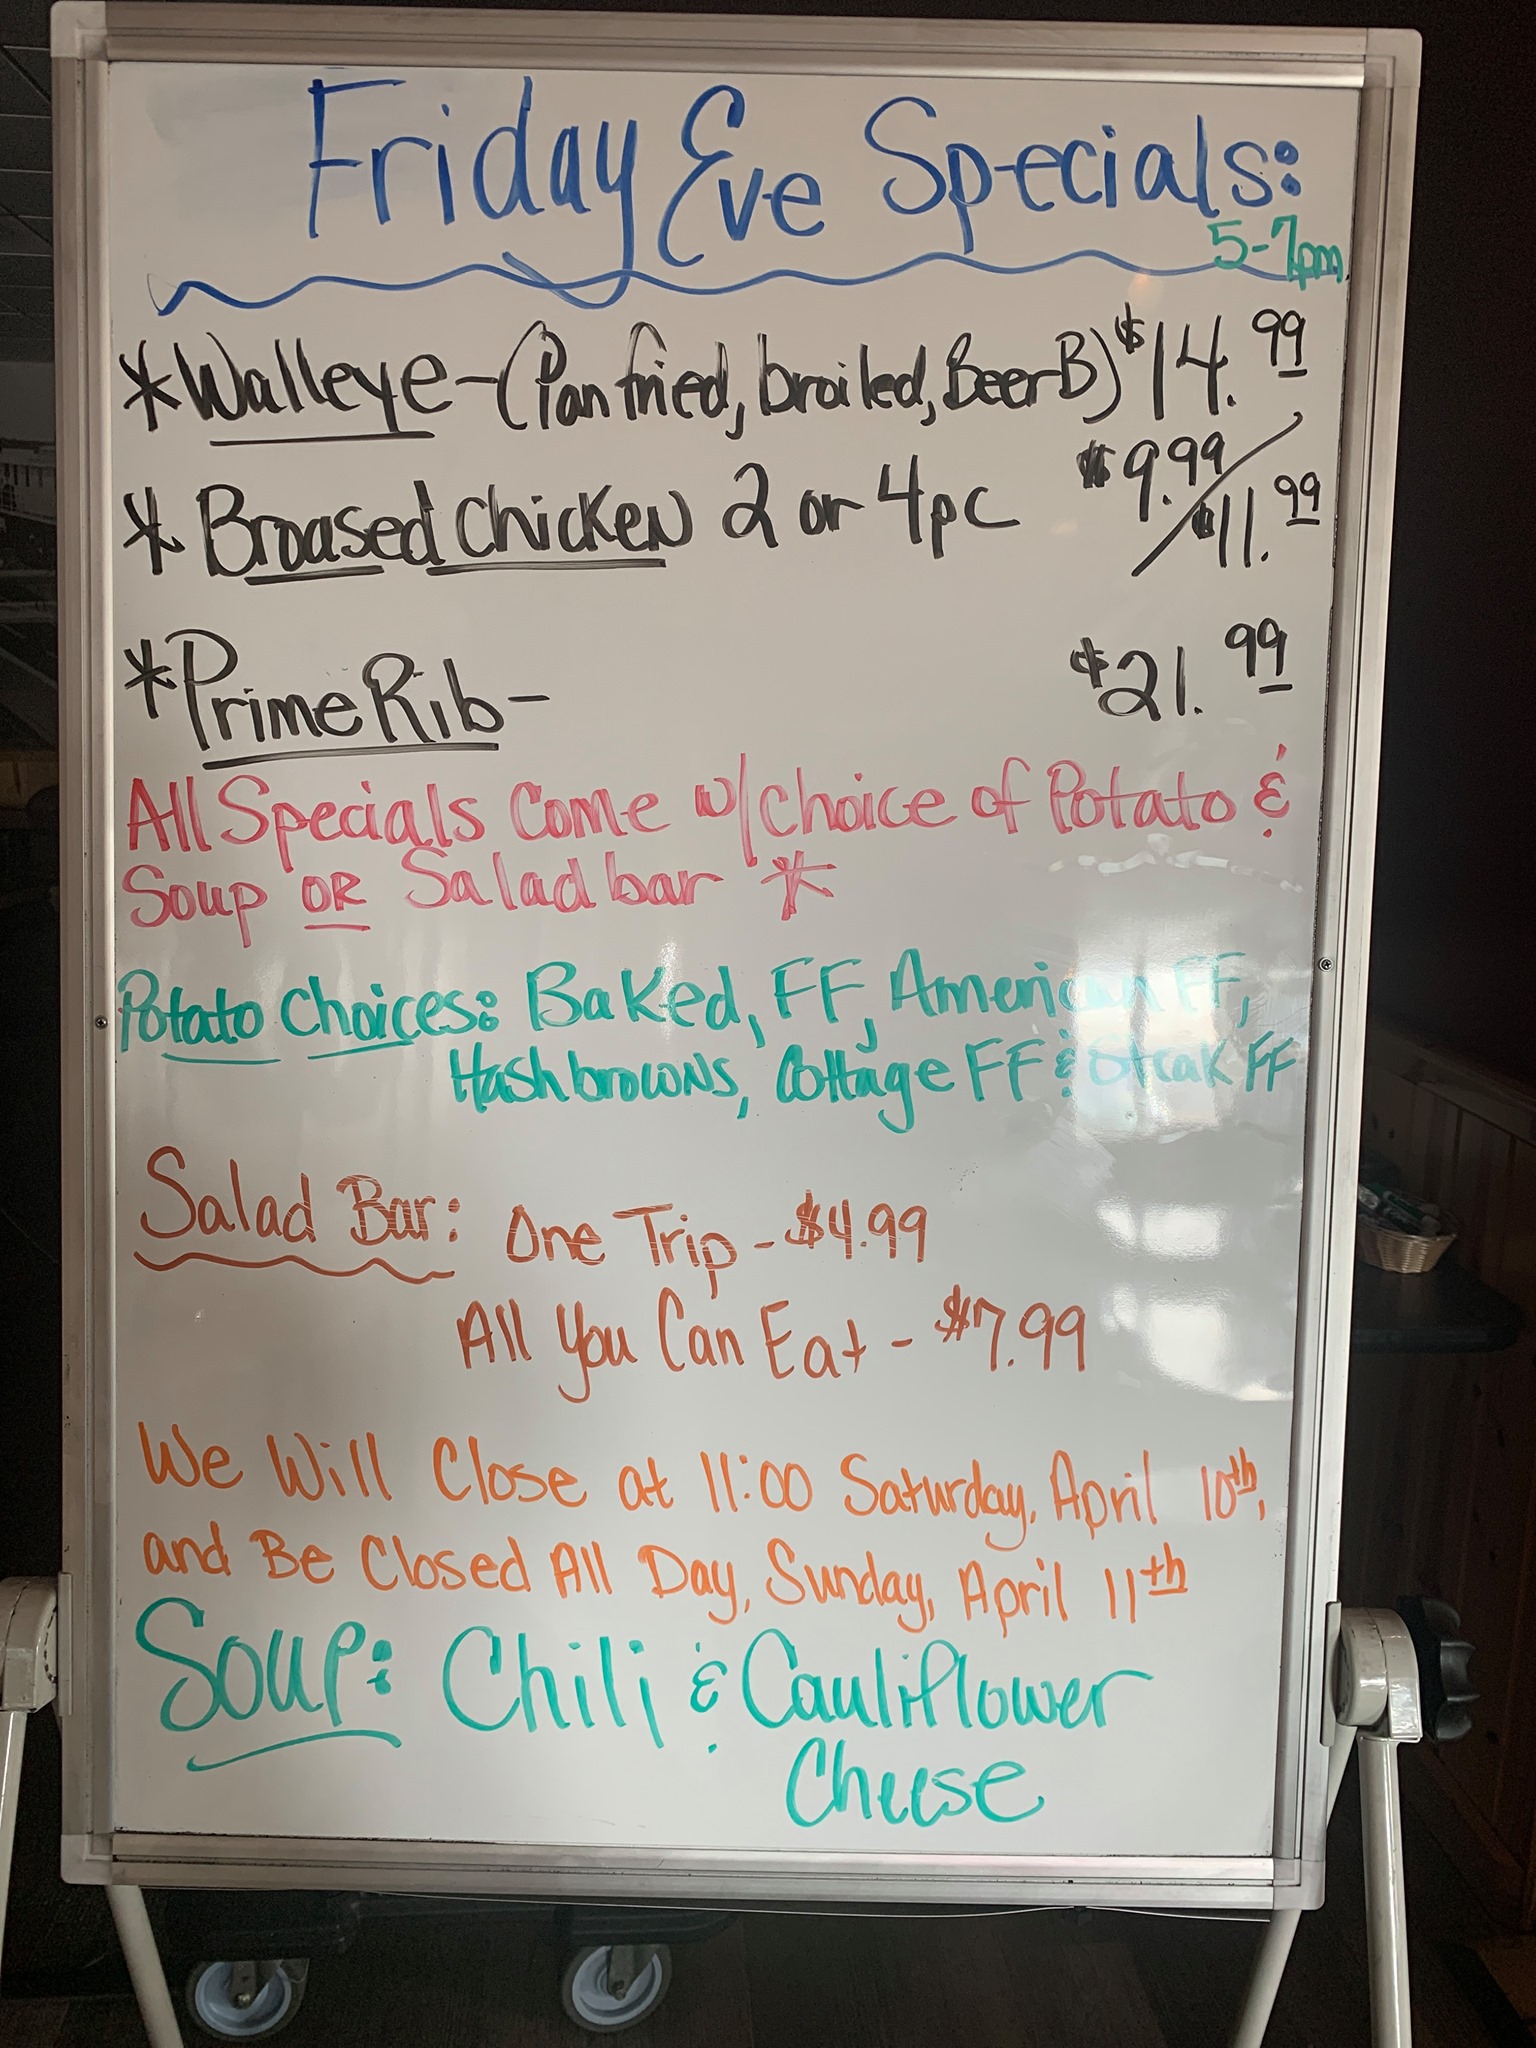 Friday Eve Specials:
5-7pm
*Walleye-(Pan fried, broiled, Beer-B) $14.99
*Broased Chicken 2 or 4pc $9.99/$11.99
*Prime Rib- $21.99
All Specials Come w/choice of Potato &
Soup OR Salad bar *
Potato Choices: Baked, FF, American FF,
Hashbrowns, Cottage FF & Steak FF
Salad Bar: One Trip - $4.99
All You Can Eat - $7.99
We Will Close at 11:00 Saturday, April 10th,
and Be Closed All Day, Sunday, April 11th
Soup: Chili & Cauliflower
Cheese